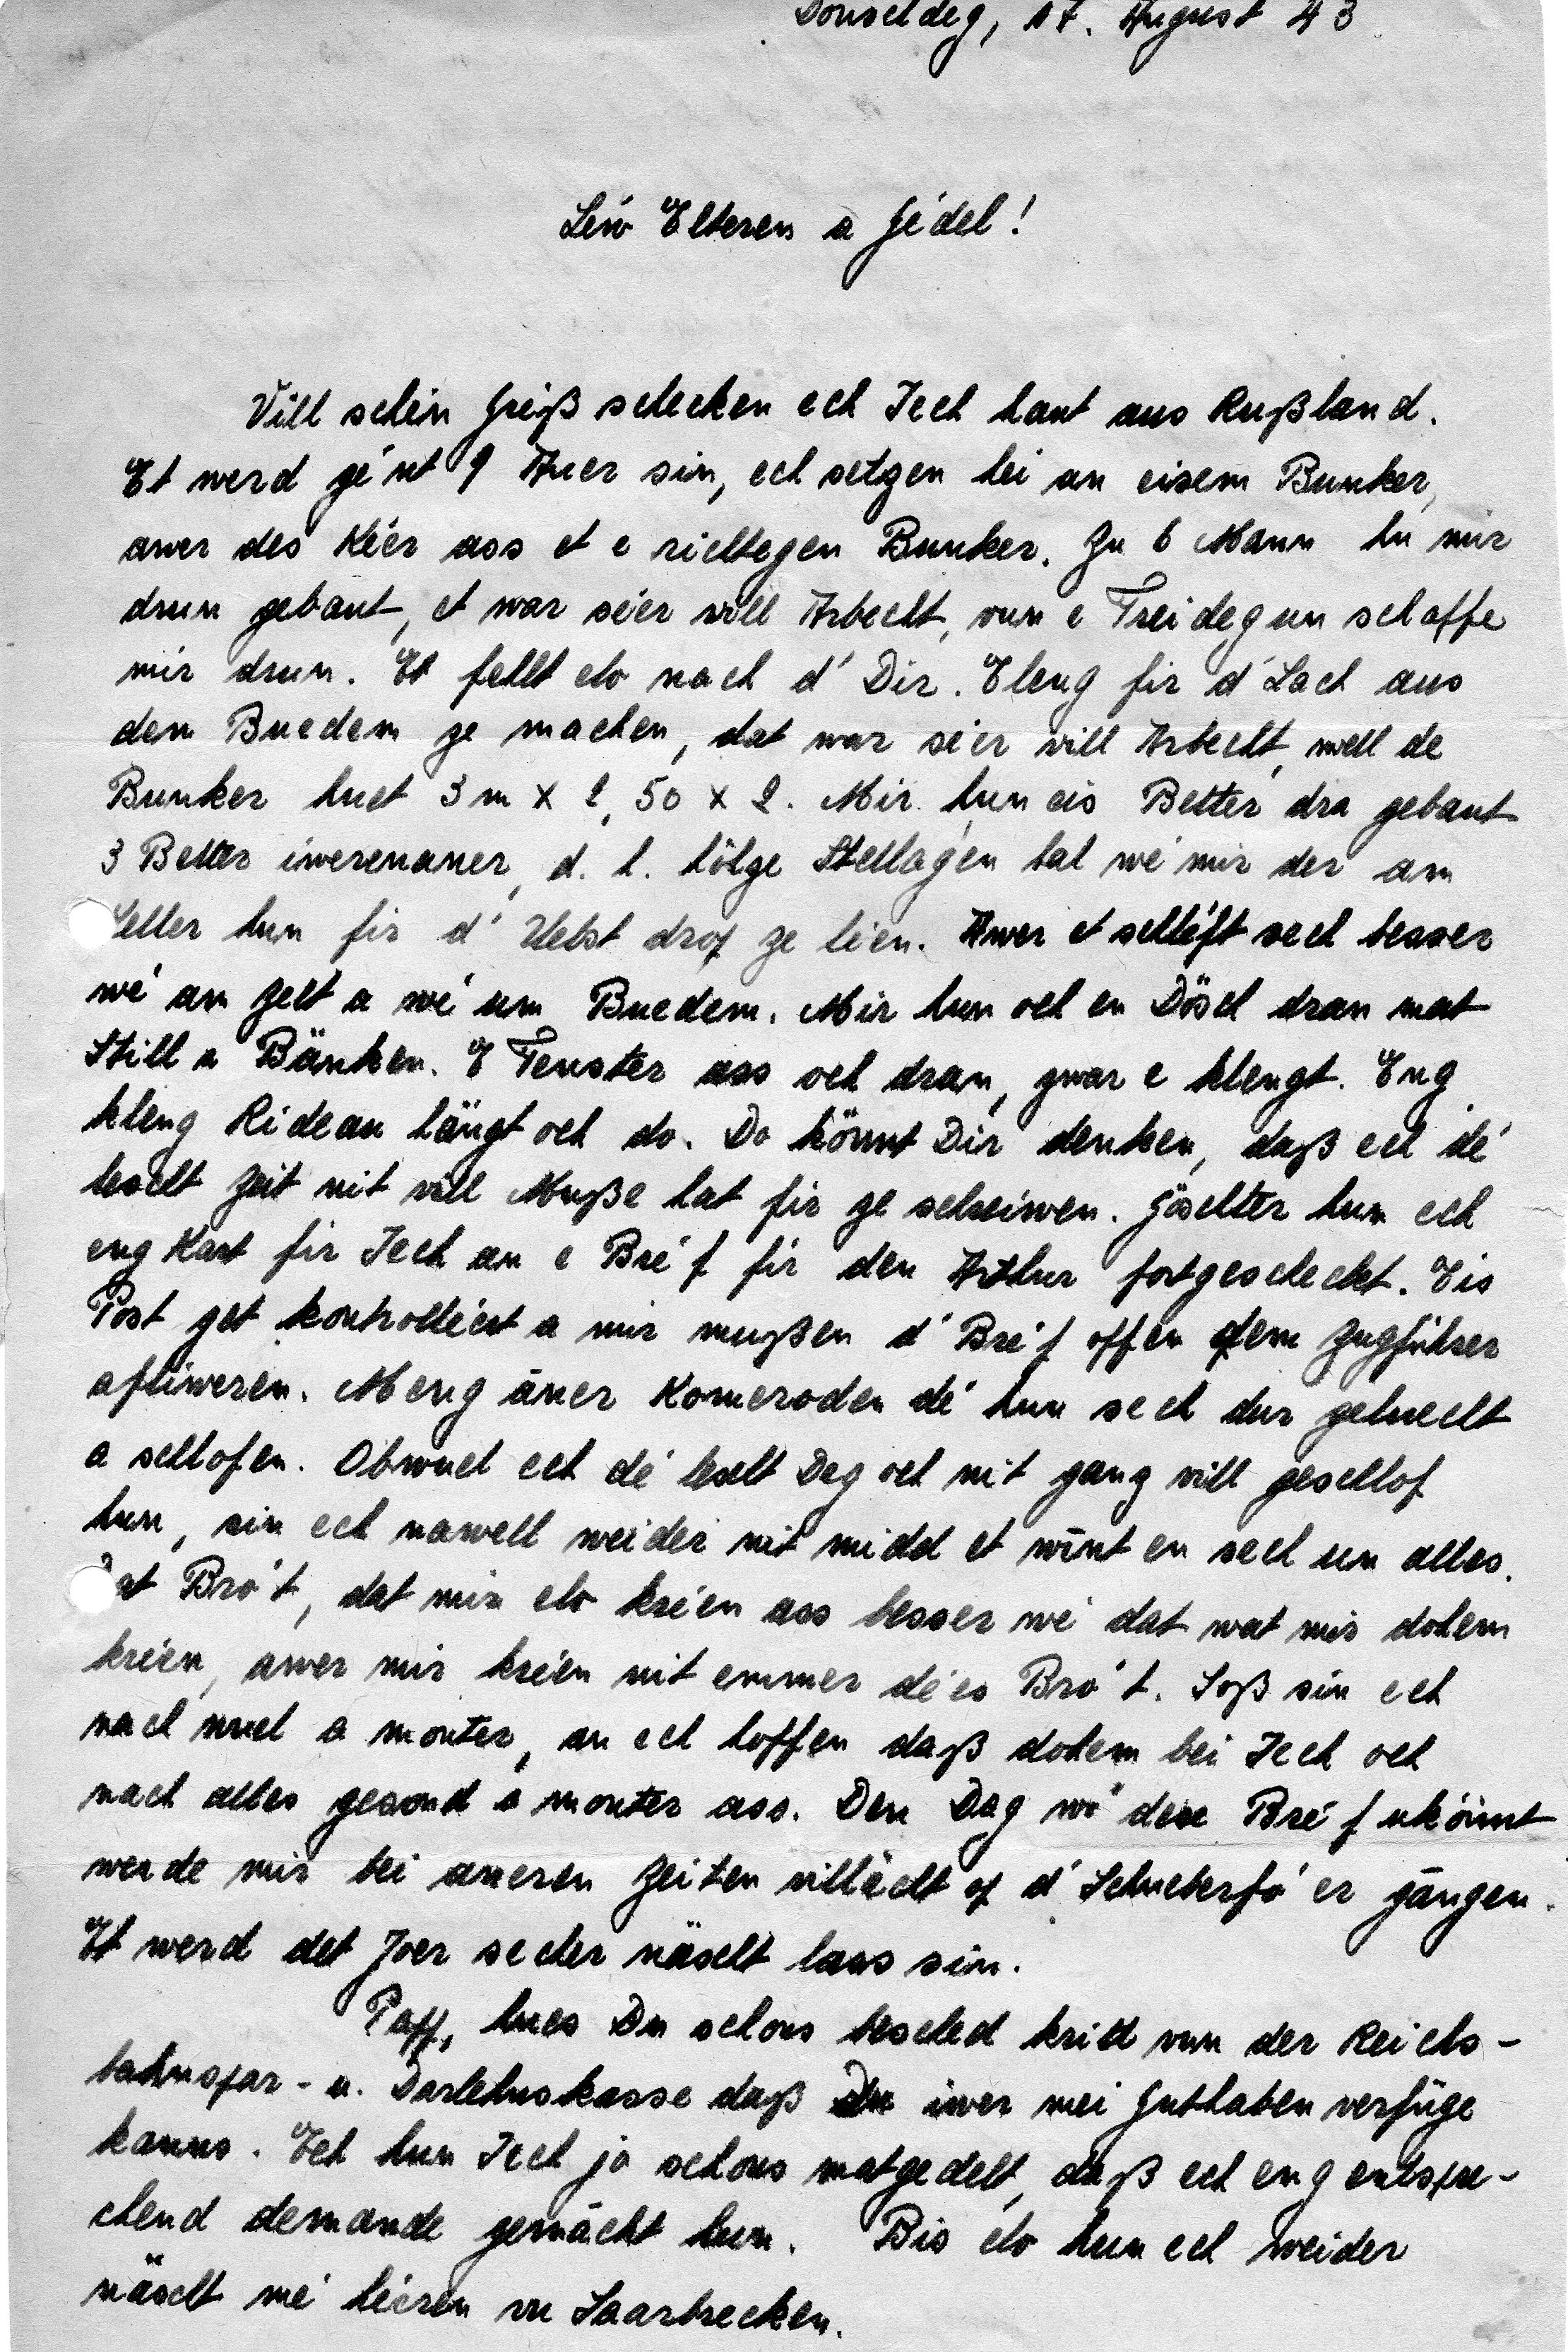 Donseldeg, 17. August 43
Léiw Elteren a Gédel!
Vill schéin Gréiß schecken ech Iech haut aus Rußland.
Et werd gént 9 Auer sin, ech setzen hei an eisem Bunker,
awer des Kéer ass et e richtegen Bunker. Zu 6 Mann hu mir
drun gebaut, et war séier vill Arbecht, vun e Freideg un schaffe
mir drun. Et fehlt elo nach d' Dir. Eleng fir d' Lach aus
dem Buedem ze machen, dat war séier vill Arbecht, well de
Bunker huet 3 m x 2,50 x 2. Mir hun eis Better dra gebaut
3 Better iwerenaner, d. h. hölze Stellagen hal wé mir der am
Keller hun fir d' Uebst drop ze léen. Awer et schléft sech besser
wé am Zelt a wé um Buedem. Mir hun och en Dösch dran mat
Still a Bänken. E Fenster ass och dran, zwar e klengt. Eng
kleng Rideau hängt och do. Do könnt Dir denken, daß ech dé
lescht Zeit nit vill Muße hat fir ze schreiwen. Göschter hun ech
eng Kart fir Iech an e Bréf fir den Arthur fortgescheckt. Eis
Post get kontrolléert a mir mußen d' Bréf offen dem Zugführer
ofliweren. Meng äner Komeroden dé hun sech dur geluecht
a schlofen. Obwuel ech dé lescht Deg och nit ganz vill geschlof
hun, sin ech nawell weider nit midd et wīnt en sech un alles.
Dat Bró't, dat mir elo kréen ass besser wé dat wat mir dohem
kréen, awer mir kréen nit emmer dées Bró't. Soß sin ech
nach wuel a monter, an ech hoffen daß dohem bei Iech och
nach alles gesond a monter ass. Den Dag wó den Bréf ukönnt
werde mir bei aneren Zeiten villächt op d' Schueberfó'er gängen.
Et werd det Joer secher näscht lass sin.
Papp, hues Du schons bescheed kritt vun der Reichs-
bahnspar- u. Darlehnskasse daß Du iwer mei Guthaben verfüge
kanns. Ech hun Iech jo schons matgedelt, daß ech eng entspre-
chend demande gemächt hun. Bis elo hun ech weider
näscht mé héieren vu Saarbrecken.